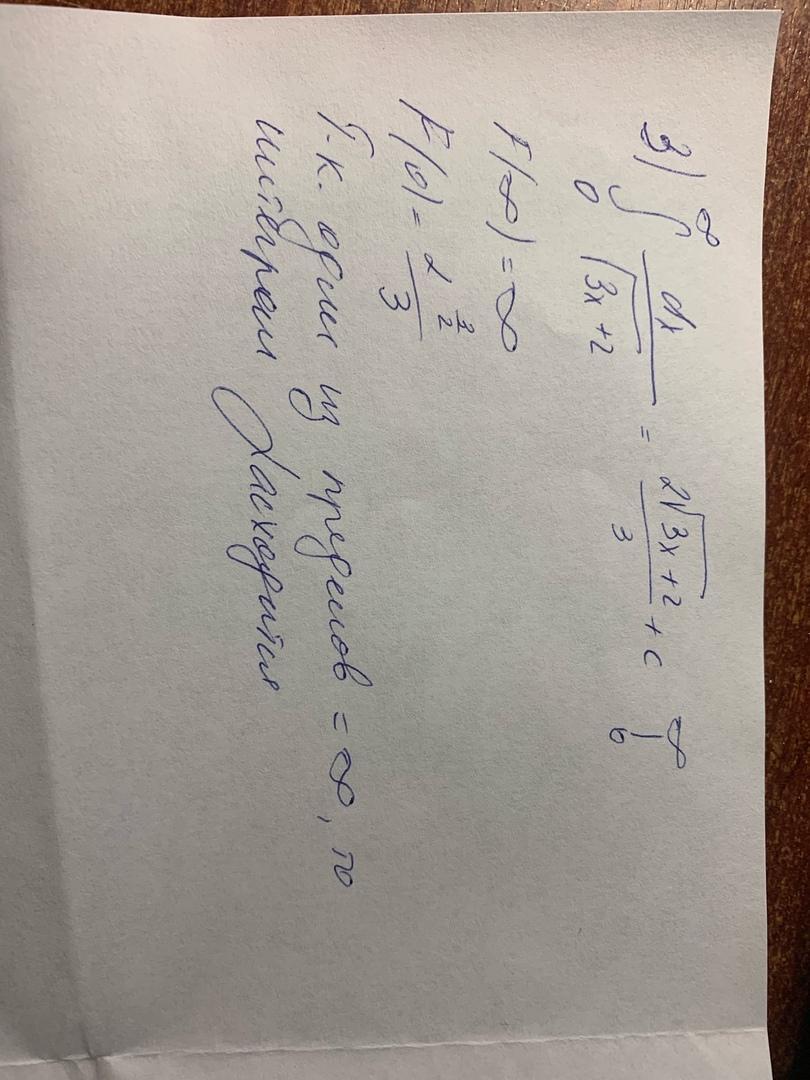 3) ∫₀^∞ dx / √(3x+2) = 2√(3x+2) / 3 + c |₀^∞
F(∞) = ∞
F(0) = 2^(3/2) / 3
Т.к. один из пределов = ∞, то
интеграл расходится